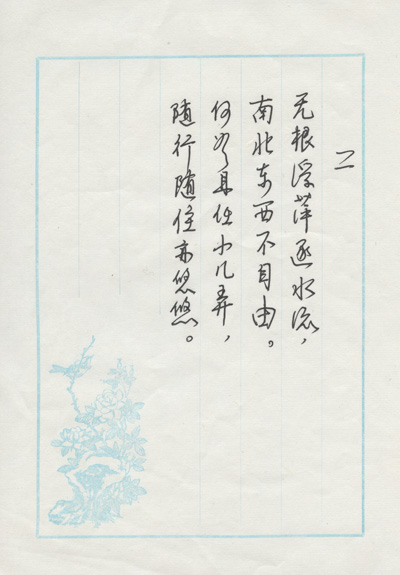 二
无根浮萍逐水流，
南北东西不自由。
何且任小儿弄，
随行随住亦悠悠。